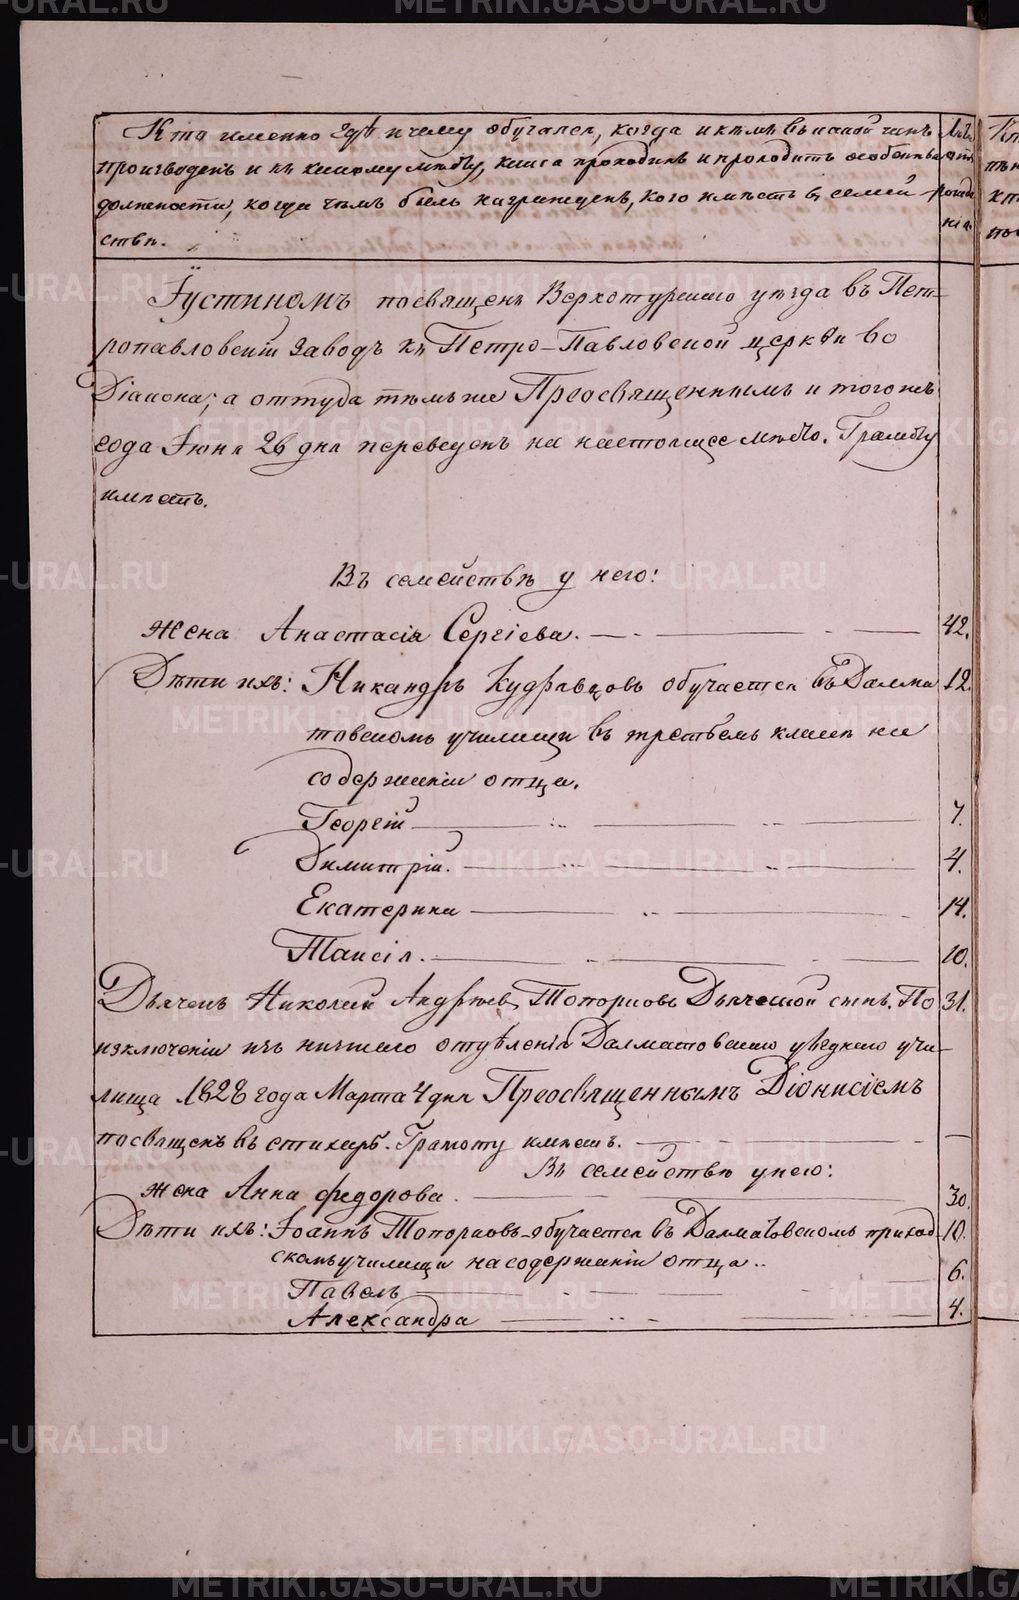 Кто именно гдѣ и чему обучался, когда и кѣмъ въ какой чинъ
произведенъ и къ какому мѣсту, какія проходилъ и проходитъ особенныя
должности, когда чѣмъ былъ награжденъ, кого имѣетъ въ семей-
ствѣ.
Лѣта
отъ
рожде
нія.
Іустиномъ посвященъ Верхотурскаго уѣзда въ Пет-
ропавловскій заводъ къ Петро-Павловской церкви во
Діакона; а оттуда тѣмъ же Преосвященнымъ и того жъ
года Іюня 26 дня переведенъ на настоящее мѣсто. Грамоту
имѣетъ.
Въ семействѣ у него:
Жена Анастасія Сергіева. 42.
Дѣти ихъ: Никандръ Кудрявцовъ обучается въ Далма 12.
товскомъ училищѣ въ третьемъ классѣ на
содержаніи отца.
Георгій 7.
Димитрій. 4.
Екатерина 14.
Таисія. 10.
Дьячекъ Николай Андреевъ Топорковъ Дьяческой сынъ. По 31.
изключеніи изъ низшаго отдѣленія Далматовскаго уѣзднаго учи-
лища 1828 года Марта 4 дня Преосвященнымъ Діонисіемъ
посвященъ въ стихарь. Грамоту имѣетъ.
Въ семействѣ у него:
Жена Анна Федорова. 30.
Дѣти ихъ: Іоаннъ Топорковъ обучается въ Далматовскомъ приход- 10.
скомъ училищѣ на содержаніи отца.
Павелъ 6.
Александра 4.
METRIKI.GASO-URAL.RU